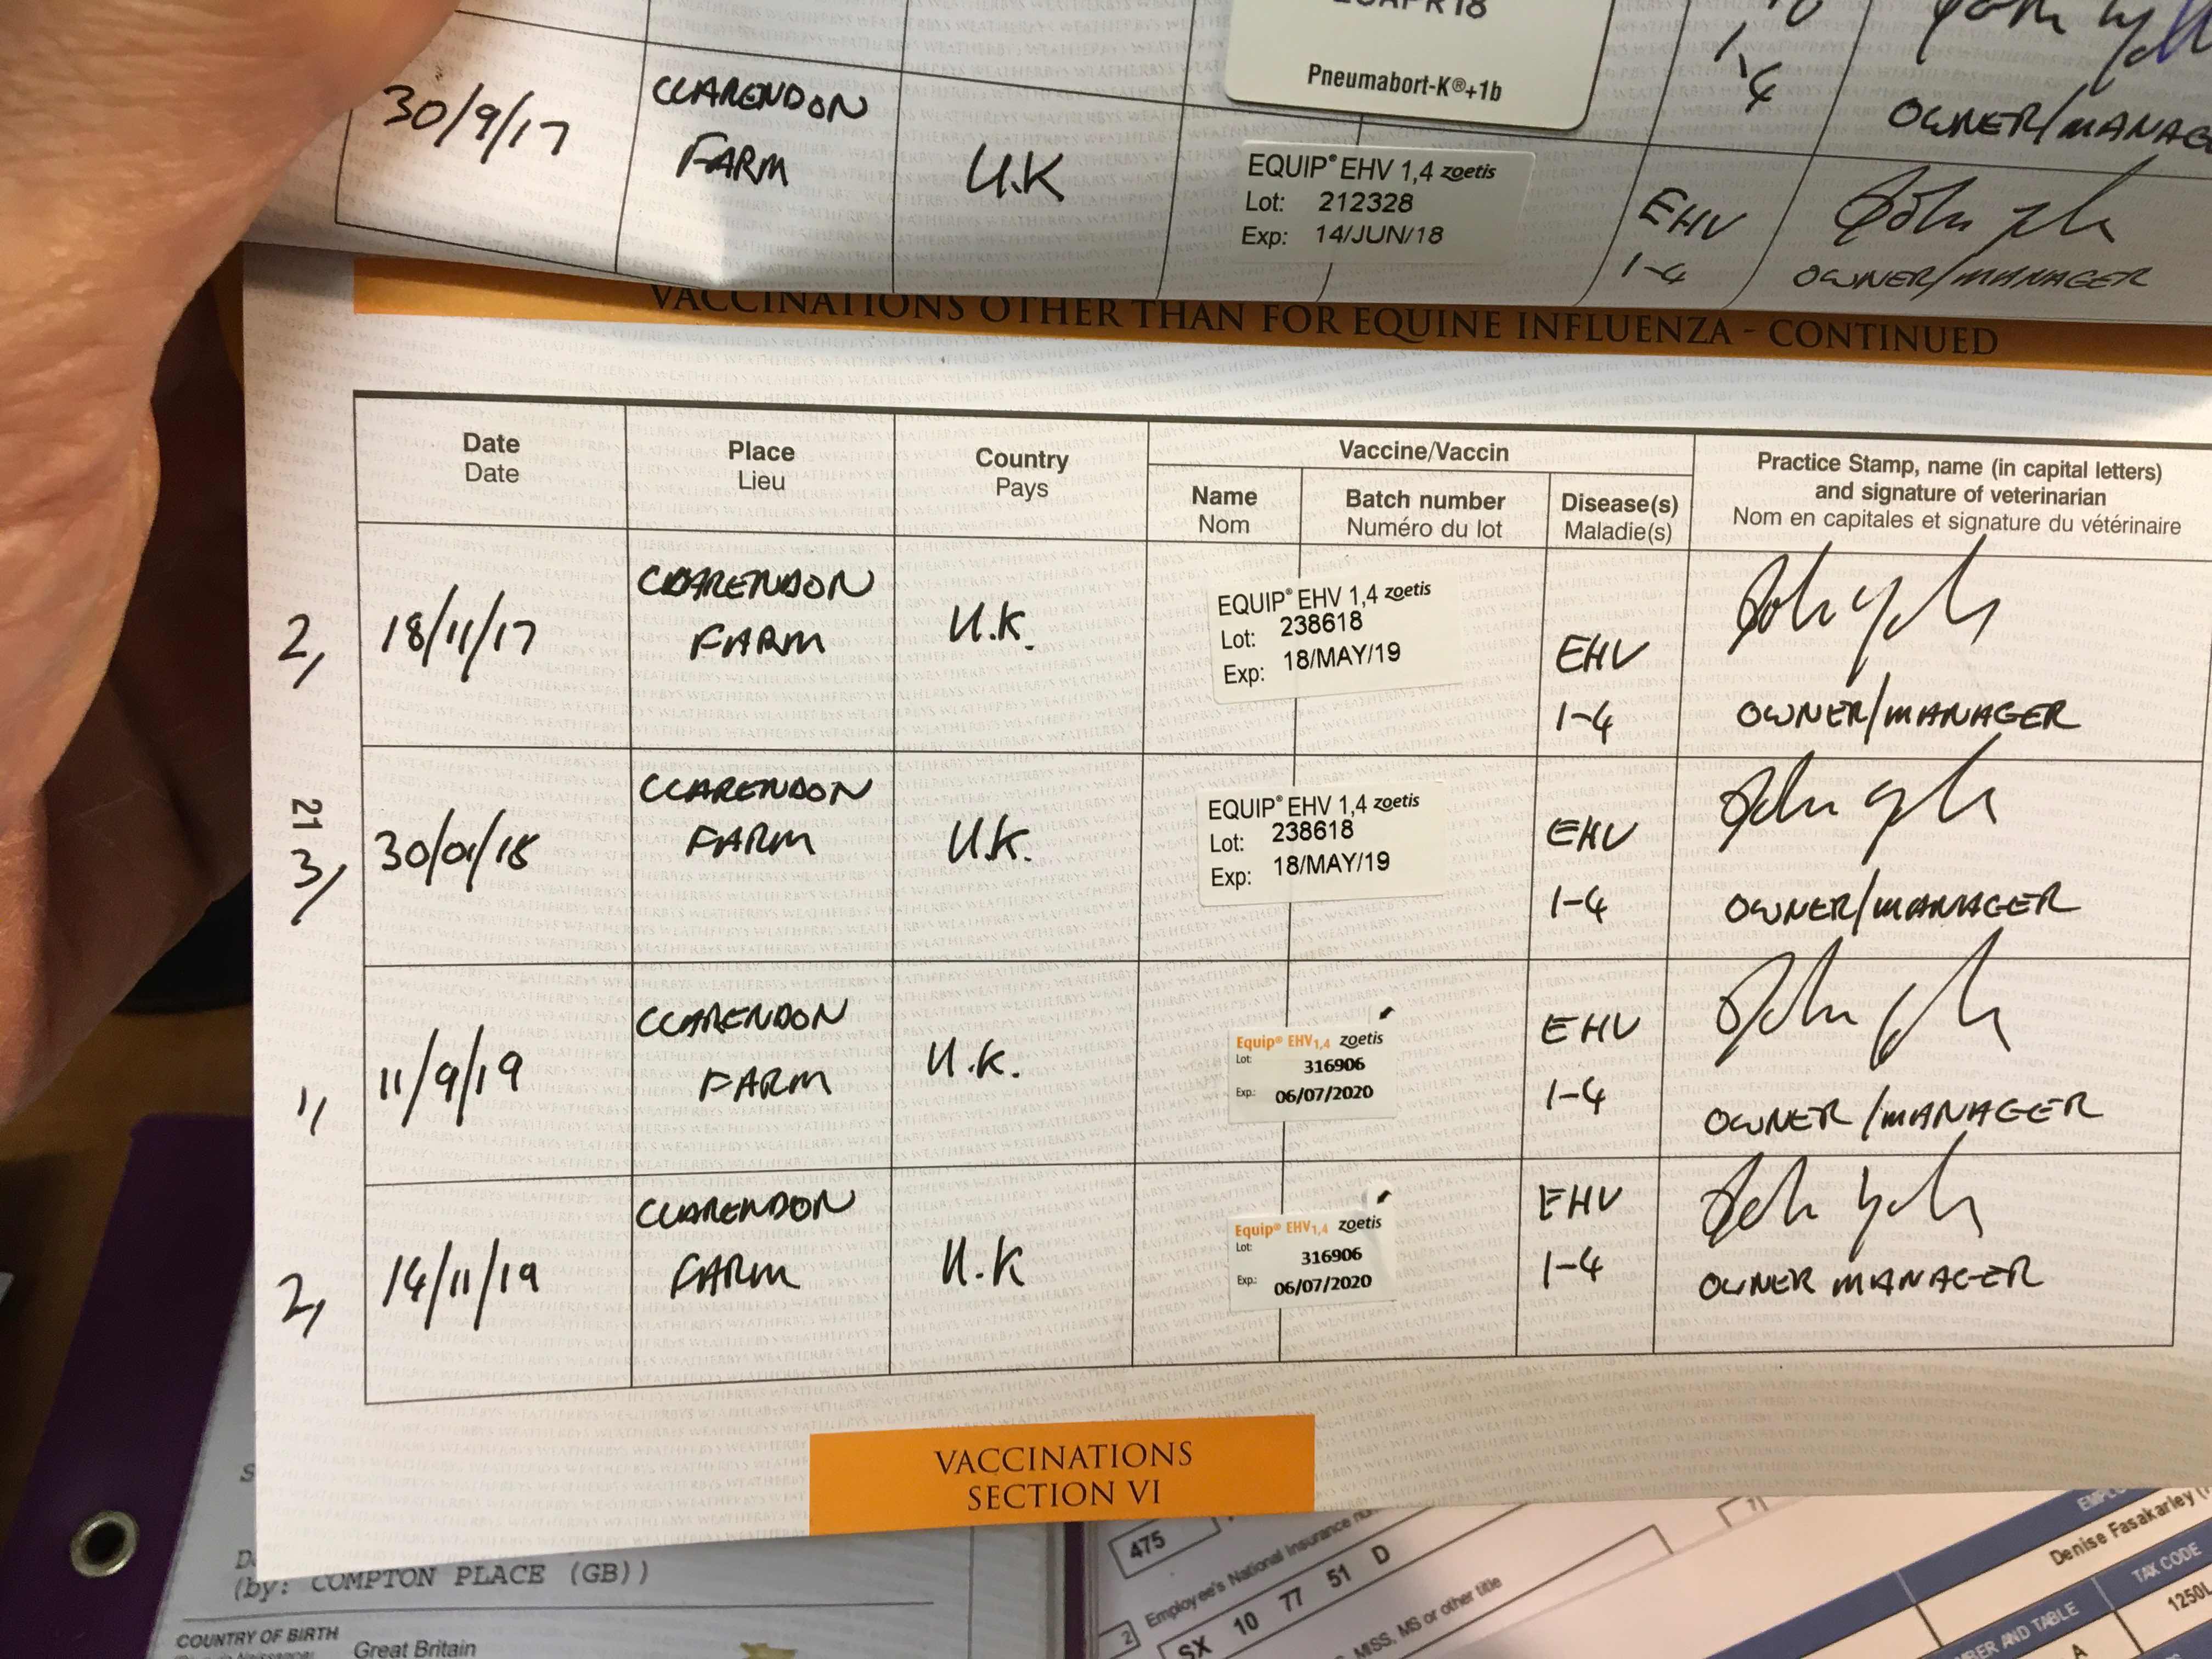 Pneumabort-K®+1b
1-4
OWNER/MANAG
30/9/17
CLARENDON
FARM
U.K
EQUIP® EHV 1,4 zoetis
Lot: 212328
Exp: 14/JUN/18
EHV
1-4
OWNER/MANAGER
VACCINATIONS OTHER THAN FOR EQUINE INFLUENZA - CONTINUED
Date
Date
Place
Lieu
Country
Pays
Vaccine/Vaccin
Name
Nom
Batch number
Numéro du lot
Disease(s)
Maladie(s)
Practice Stamp, name (in capital letters)
and signature of veterinarian
Nom en capitales et signature du vétérinaire
2,
18/11/17
CLARENDON
FARM
U.K.
EQUIP® EHV 1,4 zoetis
Lot: 238618
Exp: 18/MAY/19
EHV
1-4
OWNER/MANAGER
21
3,
30/01/18
CLARENDON
FARM
U.K.
EQUIP® EHV 1,4 zoetis
Lot: 238618
Exp: 18/MAY/19
EHV
1-4
OWNER/MANAGER
1,
11/9/19
CLARENDON
FARM
U.K.
Equip® EHV1,4 zoetis
Lot: 316906
Exp: 06/07/2020
EHV
1-4
OWNER/MANAGER
2,
14/11/19
CLARENDON
FARM
U.K
Equip® EHV1,4 zoetis
Lot: 316906
Exp: 06/07/2020
EHV
1-4
OWNER MANAGER
VACCINATIONS
SECTION VI
(by: COMPTON PLACE (GB))
COUNTRY OF BIRTH
Great Britain
475
2 Employee's National Insurance
SX 10 77 51 D
MISS, MS or other title
Denise Fasakarley
TAX CODE
1250L
AND TABLE
A